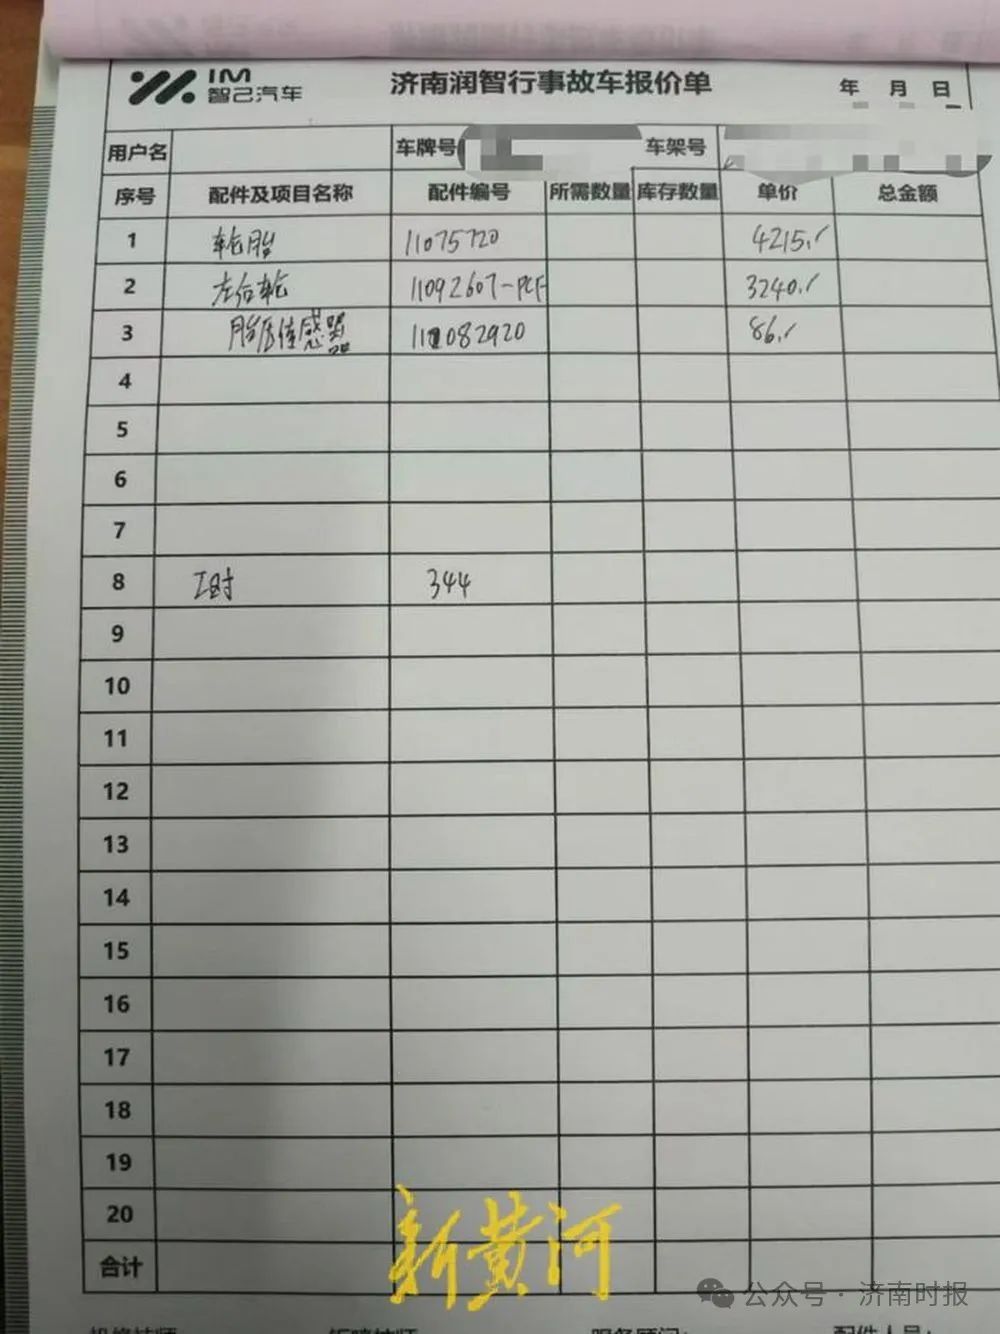 IM
智己汽车
济南润智行事故车报价单
年 月 日
用户名 车牌号 车架号
序号 配件及项目名称 配件编号 所需数量 库存数量 单价 总金额
1 轮胎 11075720 4215.
2 左后轮 11092607-PCF 3240.
3 胎压传感器 86.
4
5
6
7
8 工时 344
9
10
11
12
13
14
15
16
17
18
19
20
合计
新黄河
公众号 · 济南时报
服务顾问: 配件人员: